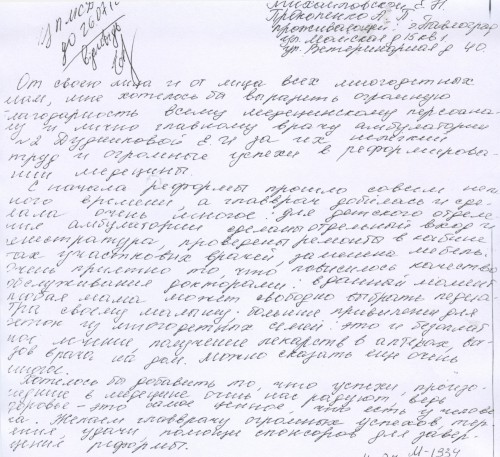 Михайловской Е.Н.
Прокопенко А. П.
проживающей: г Павлоград
ул. Майская д 15 кв 1
ул. Ветеринарная д 40.
От своего лица и от лица всех многодетных
мам, мне хотелось бы выразить огромную
благодарность всему медицинскому персона-
лу и лично главному врачу амбулатории
№2 Дудниковой Е И за их нелегкий
труд и огромные успехи в реформирова-
нии медицины.
С начала реформы прошло совсем нем
ного времени, а главврач добилась и сде-
лала очень многое: для детского отделе-
ния амбулатории сделаны отдельный вход и
регистратура, проведены ремонты в кабине
тах участковых врачей, заменена мебель.
Очень приятно то, что повысилось качество
обслуживания докторами: в данный момент
любая мама может свободно выбрать педиа-
тра своему малышу. Большие привилегии для
деток из многодетных семей: это и бесплат
ное лечение, получение лекарств в аптеках, вы-
зов врача на дом. Можно сказать еще очень
многое.
Хотелось бы добавить то, что успехи, произо-
шедшие в медицине очень нас радуют, ведь
здоровье - это самое ценное, что есть у челове
ка. Желаем главврачу огромных успехов, тер-
пения, удачи, помощи спонсоров для завер-
шения реформы.
М-1334